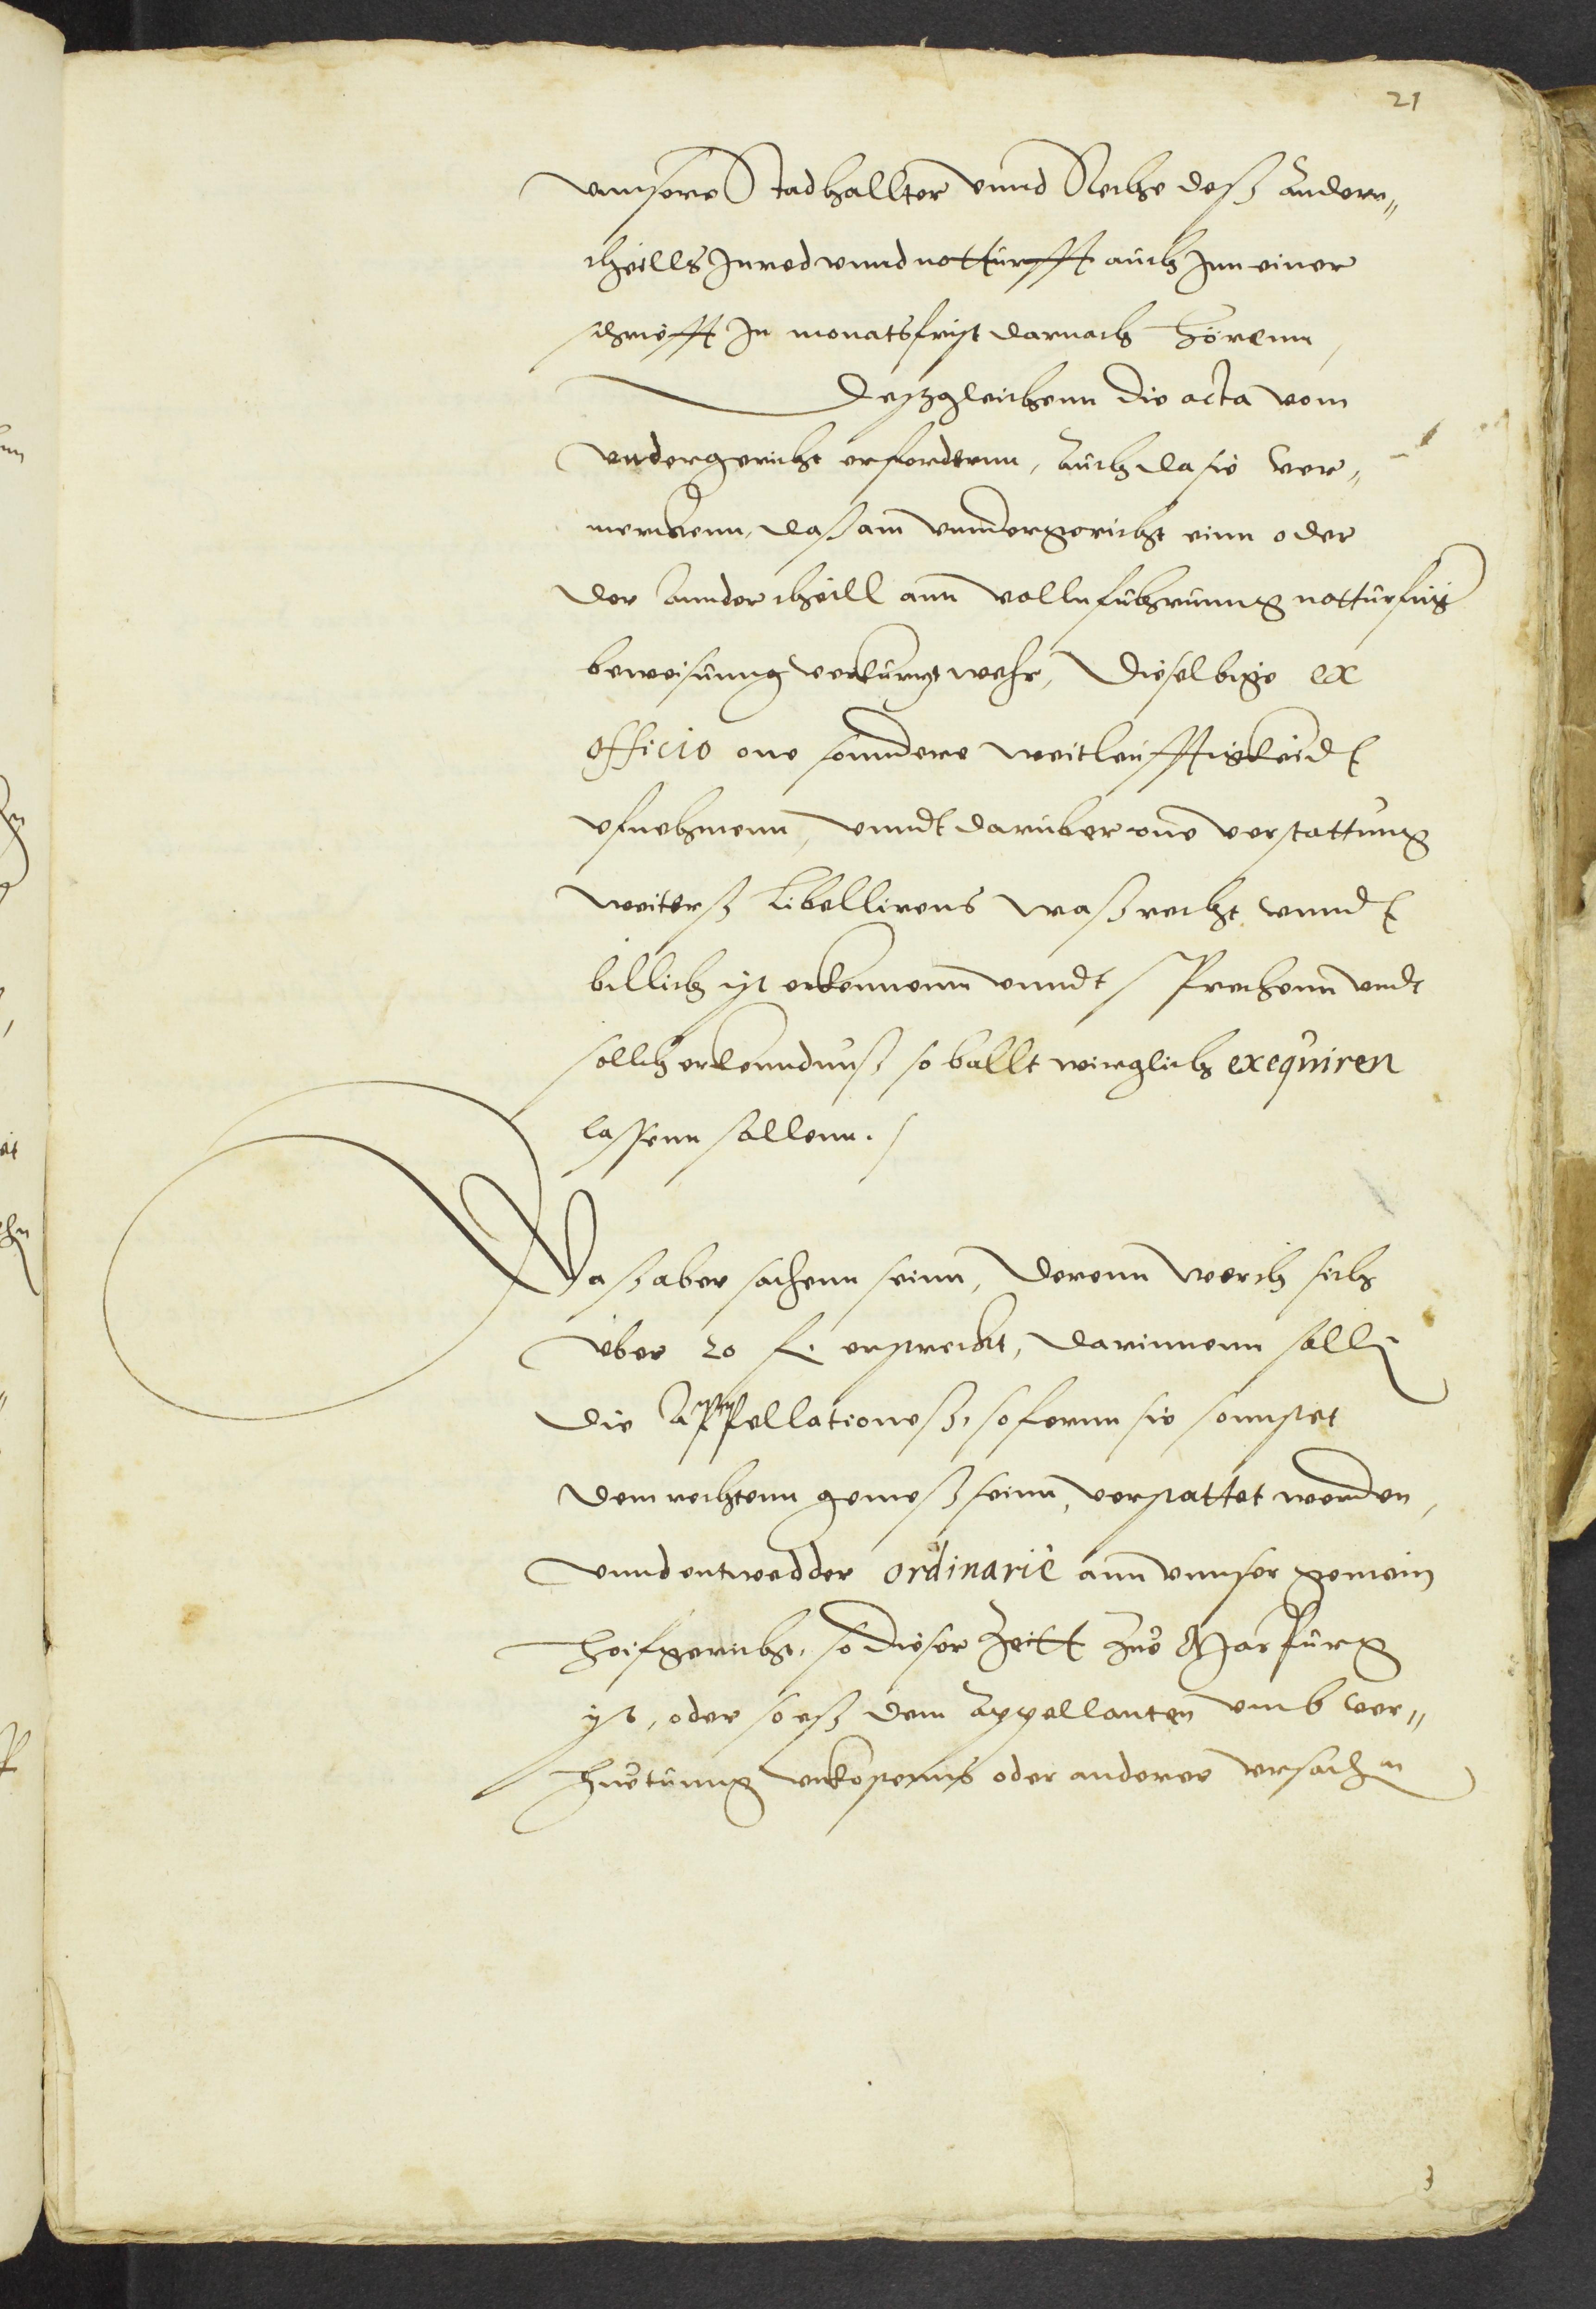 21
vnnsere Stadhallter vnnd Rethe deß andern„
theills Inred vnnd notturfft auch Inn einer
schrifft In monatsfrist darnach hörenn,
Deßgleichenn die acta vom
vndergericht erfordernn, auch da sie ver„
merckenn, daß am vnndergericht einn oder
der annder theill ann vollnfuhrunng notturftig
beweisunng verkurtzt wehr, dieselbige ex
officio one sonndere weitleufftigkeidt
vfnehmenn, vnndt daruber one verstattung
weiterß libellirens waß recht vnndt
billich ist erkennenn vnndt sprechenn vndt
sollch erkenndnuß so ballt wirglich exequiren
lassenn sollenn. /
Waß aber sachenn seinn, derenn werth sich
vber 20 fl. erstreckt, darinnenn soll
die Appellationeß, sofernn sie sonnstet
dem rechtenn gemeß seinn, verstattet werden,
vnnd entwedder ordinariè ann vnnser gemein
hoifgericht, so dieser Zeitt zue Marpurg
ist, oder so eß dem appellanten vmb ver„
huetunng vnkostenns oder anderer vrsachn
3